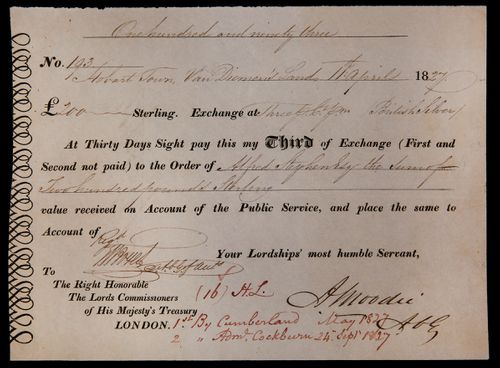 One hundred and ninety three
No. 193
Hobart Town, Van Diemen's Land, 11th April 1837
£200 Sterling. Exchange at Three P. Ct. Pm British Silver
At Thirty Days Sight pay this my Third of Exchange (First and
Second not paid) to the Order of Alfred Stephen Esq the Sum of
Two hundred pounds Sterling
value received on Account of the Public Service, and place the same to
Account of
Your Lordships' most humble Servant,
To
The Right Honorable
The Lords Commissioners
of His Majesty's Treasury
LONDON.
(16) H.L.
A Moodie
A C G
1st By Cumberland May 1837
2 " Adml. Cockburn 25 Sept 1837